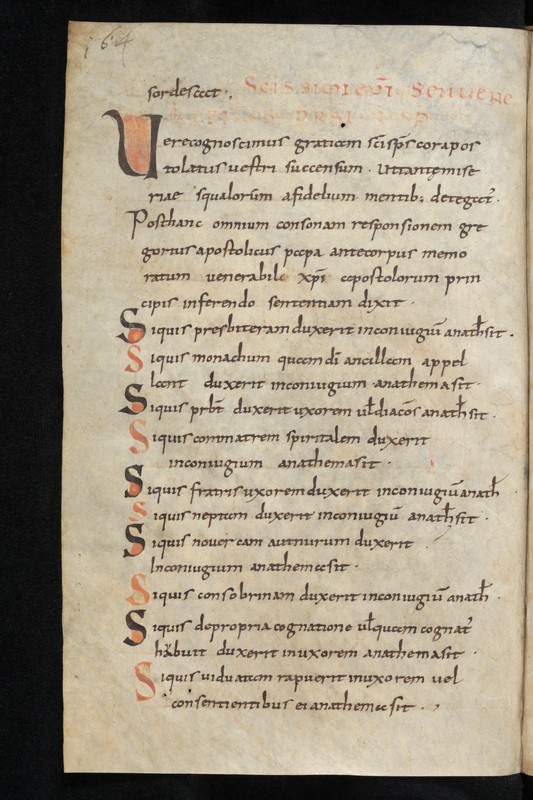 164
sordescat ·,
Uere cognoscimus gratiam sc̄i sp̄s cor apos
tolatus vestri succensum · Ut tantę mise
riae squalorum a fidelium mentib; detegat ·
Post hanc omnium consonam responsionem gre
gorius apostolicus papa ante corpus memo
ratum venerabile xp̄i apostolorum prin
cipis inferendo sententiam dixit ·
Siquis presbiteram duxerit in coniugiū anath̄ sit ·
Siquis monacham quam dī ancillam appel
lant duxerit in coniugium anathema sit ·
Siquis prb̄t duxerit uxorem ul̄ diacōs anath̄ sit ·
Siquis commatrem spiritalem duxerit
in coniugium anathema sit ·
Siquis fratris uxorem duxerit in coniugiū anath̄
Siquis neptam duxerit in coniugiū anath̄ sit ·
Siquis novercam aut nurum duxerit
In coniugium anathema sit ·
Siquis consobrinam duxerit in coniugiū anath̄ ·
Siquis de propria cognatione ul̄ quam cognat̄
habuit duxerit in uxorem anathema sit ·
Siquis viduatam rapuerit in uxorem uel
consentientibus ei anathema sit ·